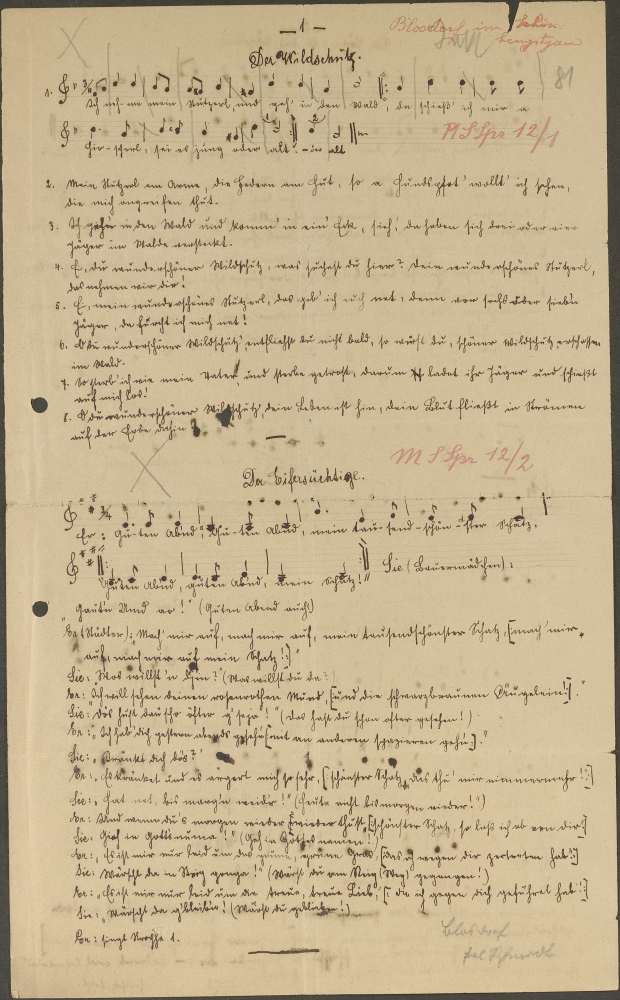 — 1 —
Blosdorf im Schön-
hengstgau
Der Wildschütz.
81
1. Ich nehme mein Stutzerl, und geh' in den Wald, da schieß' ich mir a
Hirscherl, sei es jung oder alt. – alt
M S Spr 12/1
2. Mein Stutzerl im Arme, die Federn am Hut, so a Hundsgfot' wollt' ich sehen,
die mich angreifen thut.
3. Ich gehe in den Wald und komm' in ein' Eck, sieh', da haben sich drei oder vier
Jäger im Walde versteckt.
4. E, du wunderschöner Wildschütz, was suchest du hier? Dein wunderschönes Stutzerl,
das nehmen wir dir!
5. E, mein wunderschönes Stutzerl, das geb' ich euch net, denn vor sechs oder sieb'n
Jäger, da fürcht ich mich net!
6. O du wunderschöner Wildschütz' entfliehst du nicht bald, so wirst du, schöner Wildschütz erschossen
im Wald.
7. So sterb' ich wie mein Vater und sterbe getrost, darum ladet ihr Jäger und schießt
auf mich los!
8. O du wunderschöner Wildschütz', dein Leben ist hin, dein Blut fließt in Strömen
auf der Erde dahin
M S Spr 12/2
Der Eifersüchtige.
Er: Guten Abnd, Guten Abnd, mein tausendschönster Schatz,
guten Abnd, guten Abnd, mein Schatz!" Sie (Bauermädchen):
"Gaut'n Umd ao!" (Guten Abend auch!)
Er (Städter): Mach' mir auf, mach mir auf, mein tausendschönster Schatz, [mach' mir
auf, mach mir auf mein Schatz!:]"
Sie: "Wos willst'n " (Was willst du da?
Er: "Ich will sehen deinen rosenrothen Mund, [und die schwarzbraunen Äugelein!:]."
Sie: "Dos host dau scho öfter g'sejo!" (Das hast du schon öfter gesehen!)
Er: "Ich hab' dich gestern abends gesehn [mit an anderen spazieren gehn:]."
Sie: "Kränkt dich dos?"
Er: "Es kränket und es ärgert mich so sehr, [:schönster Schatz, das thu' mir nimmermehr!:]
Sie: "Hat net, bis morg'n wieder!" (Heute nicht bis morgen wieder!")
Er: "Und wenn du's morgen wieder thust, [schönster Schatz, so laß ich ab von dir:]
Sie: "Geh in Gottsnuma!" (Geh in Gottes namen!)
Er: "Es ist mir nur leid um das grüne, grüne Gras, [das ich wegen dir zertreten hab:]
Sie: "Wärst da in Steig ganga!" (Wärst du am Steig (Weg) gegangen!)
Er: "Es ist mir nur leid um die treue, treue Lieb, [: die ich gegen dich geführet hab!:]
Sie: "Wärscht da g'bleibn! (Wärst du geblieben!)
Er: singt Strophe 1.
Blosdorf